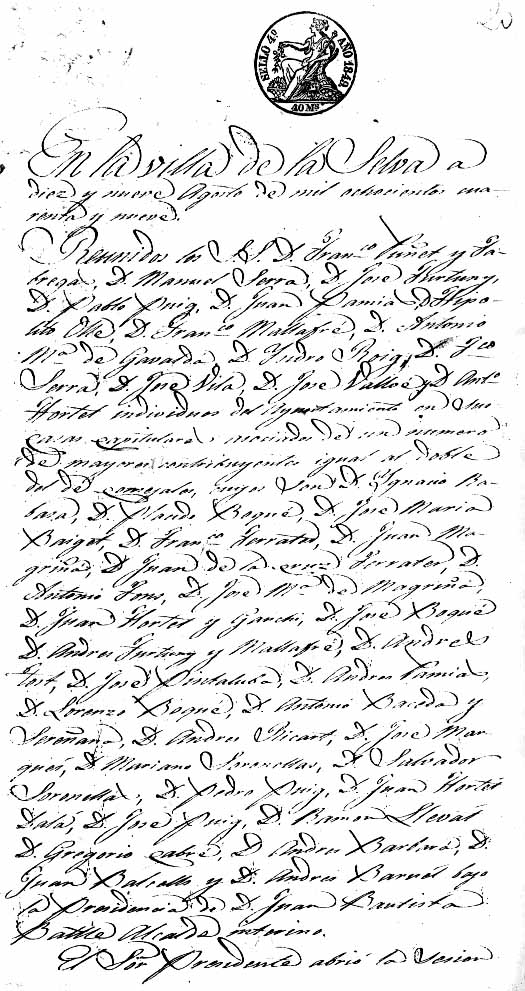 SELLO 4º AÑO 1849.
40 Ms.
En la villa de la Selva a
diez y nueve Agosto de mil ochocientos cua-
renta y nueve.
Reunidos los S.S. D. Franco. Puñet y Fá-
brega, D. Manuel Serra, D. José Furtuny,
D. Pablo Puig, D. Juan Pamias, D. Hipo-
lito Ollé, D. Franco. Mallafré, D. Antonio
Ma. de Gavaldá, D. Ysidro Roig, D.
Serra, D. José Vilá, D. José y D. Anto.
Hortet individuos del Ayuntamiento en sus
casas capitulares asociados de un numero
de mayores contribuyentes igual al doble
del de concejales, cuyos son D. Ygnacio Ba-
D. Placido Boqué, D. José Maria
Baiget, D. Franco. Ferrater, D. Juan Ma-
griñá, D. Juan de la cruz Ferrater, D.
Antonio Fons, D. José Ma. de Magriñá,
D. Juan Hortet y D. José Boqué
D. Andres Furtuny y Mallafré, D. Andres
Fort, D. José Pintaluba, D. Andres Pamias,
D. Lorenzo Boqué, D. Antonio y
D. Andres Ricart, D. José Mar-
qués, D. Mariano Soronellas, D. Salvador
Soronellas, D. Pedro Puig, D. Juan Hortet
D. José Puig, D. Ramon Llevat
D. Gregorio Cabré, D. Andres Barberá, D.
Juan Balcells y D. Andres bajo
la Presidencia de D. Juan Bautista
Batlle Alcalde interino.
El Sor. Presidente abrió la sesion